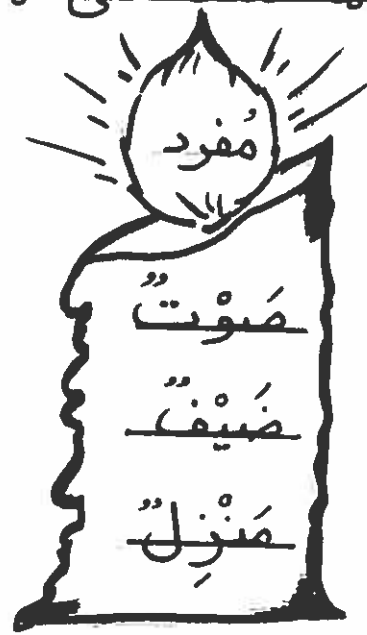 مُفرد
صَوْتٌ
ضَيْفٌ
مَنْزِلٌ